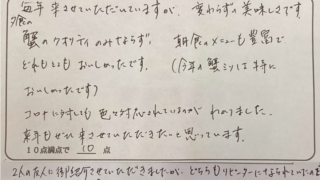 毎年来させていただいていますが、変わらずの美味しさです
夕食の
蟹のクオリティのみならず、朝食のメニューも豊富で
どれもとてもおいしかったです。(今年の蟹ミソは特に
おいしかったです)
コロナに対しても色々対応されているのがわかりました。
来年もぜひ来させていただきたいと思っています。
10点満点で 10 点
2人の友人に御紹介させていただきましたが、どちらもリピーターになられていたのを